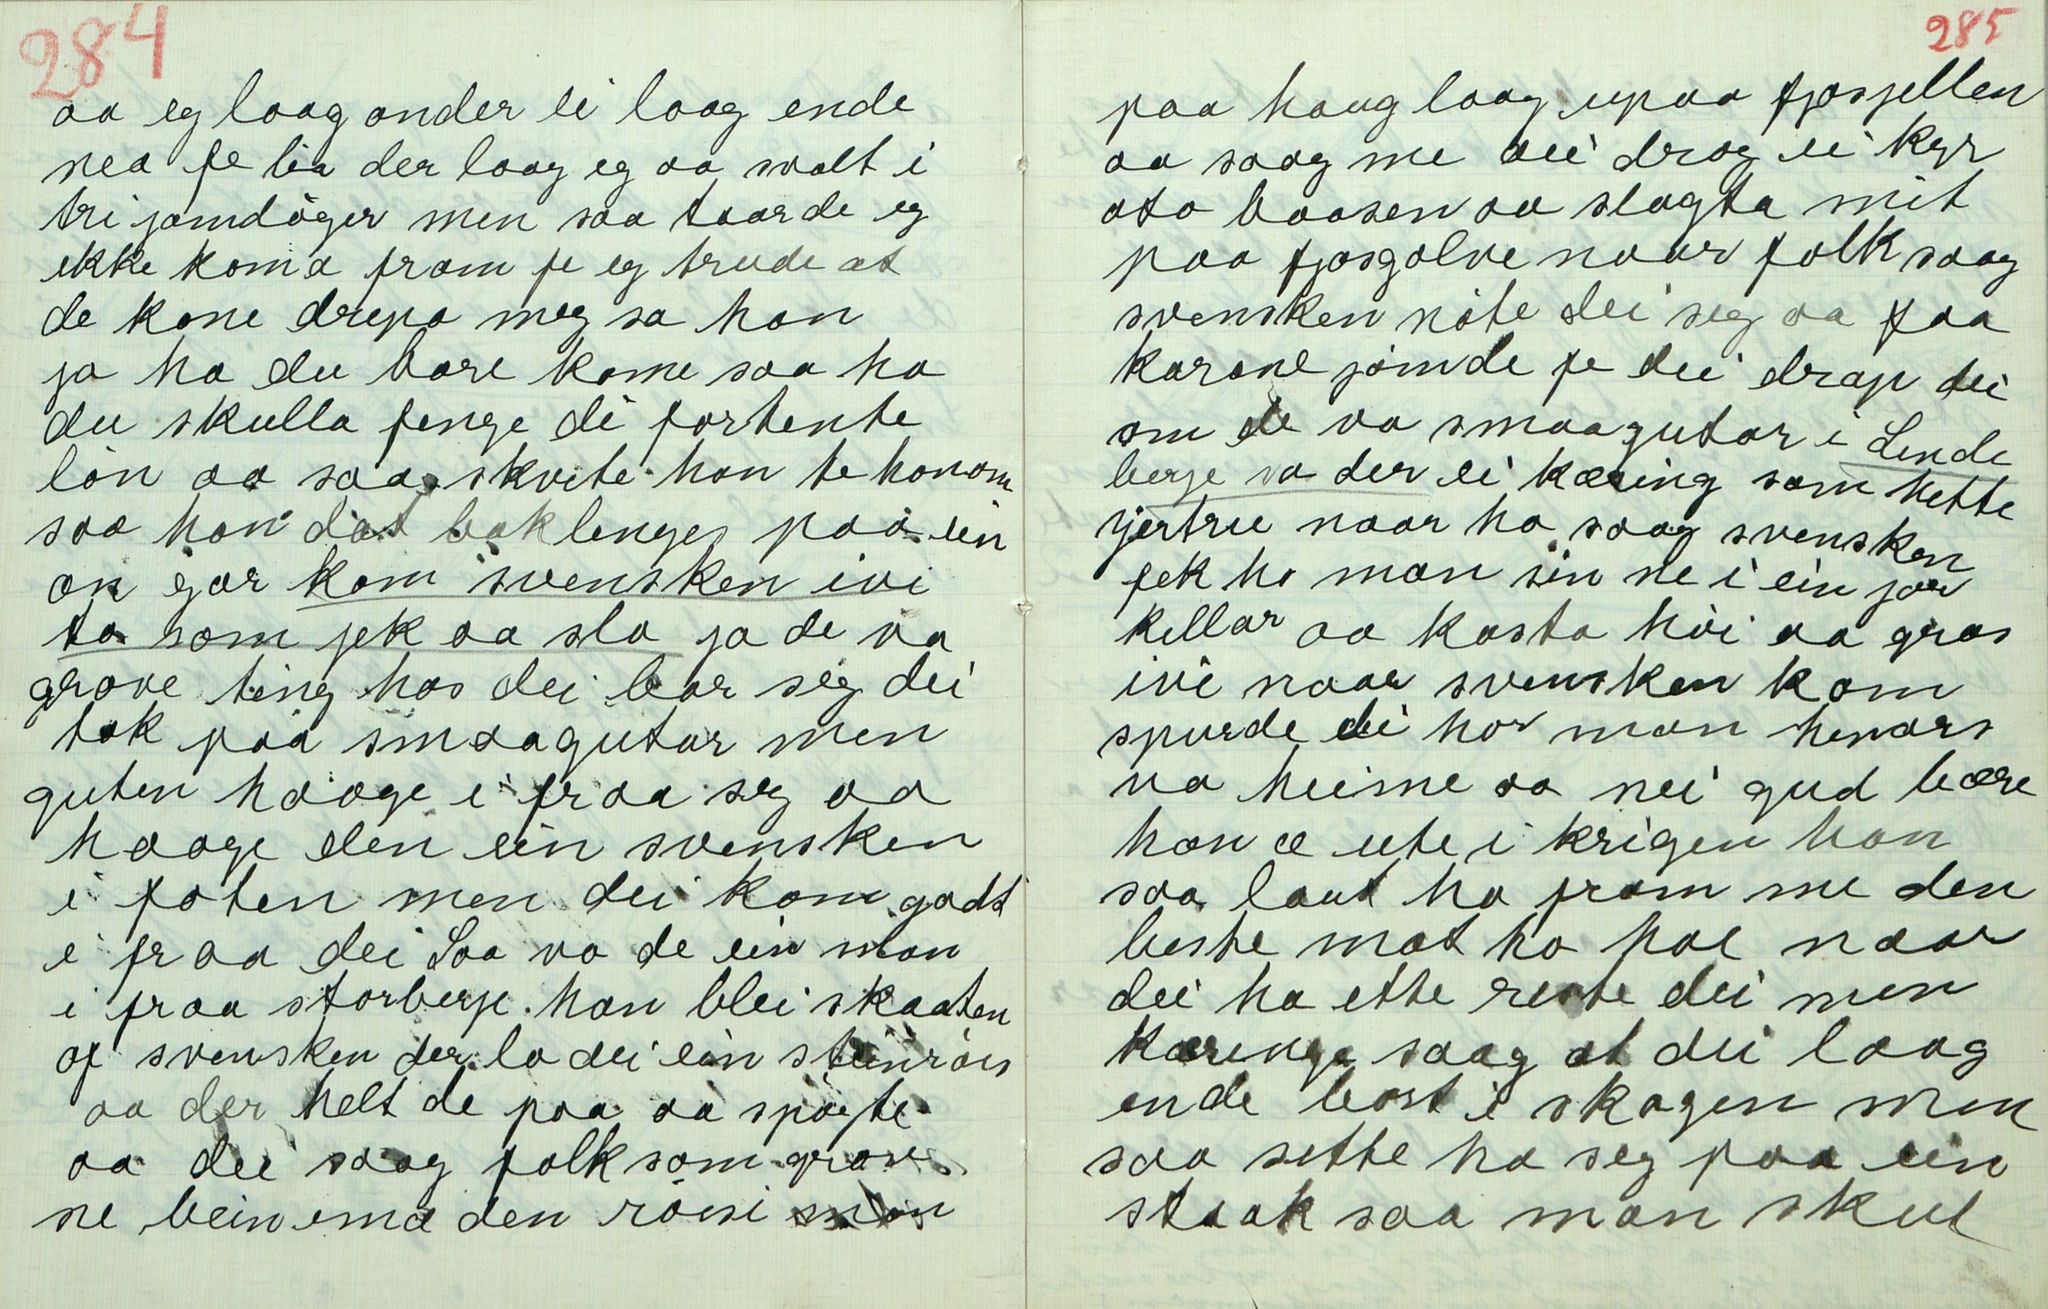 284
aa eg laag onder ei laag ende
nea fe lia der laag eg aa svalt i
tri jamdöger men saa taarde eg
ekke koma fram fe eg trude at
de kone drepa meg sa han
ja ha du bare kome saa ha
du skulla fenge di fortente
lön aa saa skvete han te honom
saa han dat baklenges paa ein
an gar kom svensken ivi
ta som jek aa slo ja de va
grove ting hos dei bar seg dei
tok paa smaagutar men
guten haage i fraa seg aa
haage den ein svensken
i foten men dei kom godt
i fraa dei Saa va de ein man
i fraa storberje han blei skaaten
af svensken der la dei ein steinröis
aa der helt de paa aa spögte
aa dei saag folk som grov
ne bein ema den röisi man
285
paa haug laag upaa fjosjellen
aa saag me dei drog ei kyr
ota baasen aa slagta mit
paa fjosgolve naar folk saag
svensken nöte dei seg aa faa
karane jömde fe dei drap dei
om de va smaagutar i Linde
berje va der ei kæring som hette
jertru naar ho saag svensken
fek ho man sin ne i ein jor
kellar aa kasta höi aa gras
ivi naar svensken kom
spurde dei hor man henars
va heime aa nei gud bære
han æ ute i krigen han
saa laut ho fram me den
beste mat ho hae naar
dei ha ette reste dei men
kæringe saag at dei laag
ende bort i skogen men
saa sette ho seg paa ein
staak saa man skul